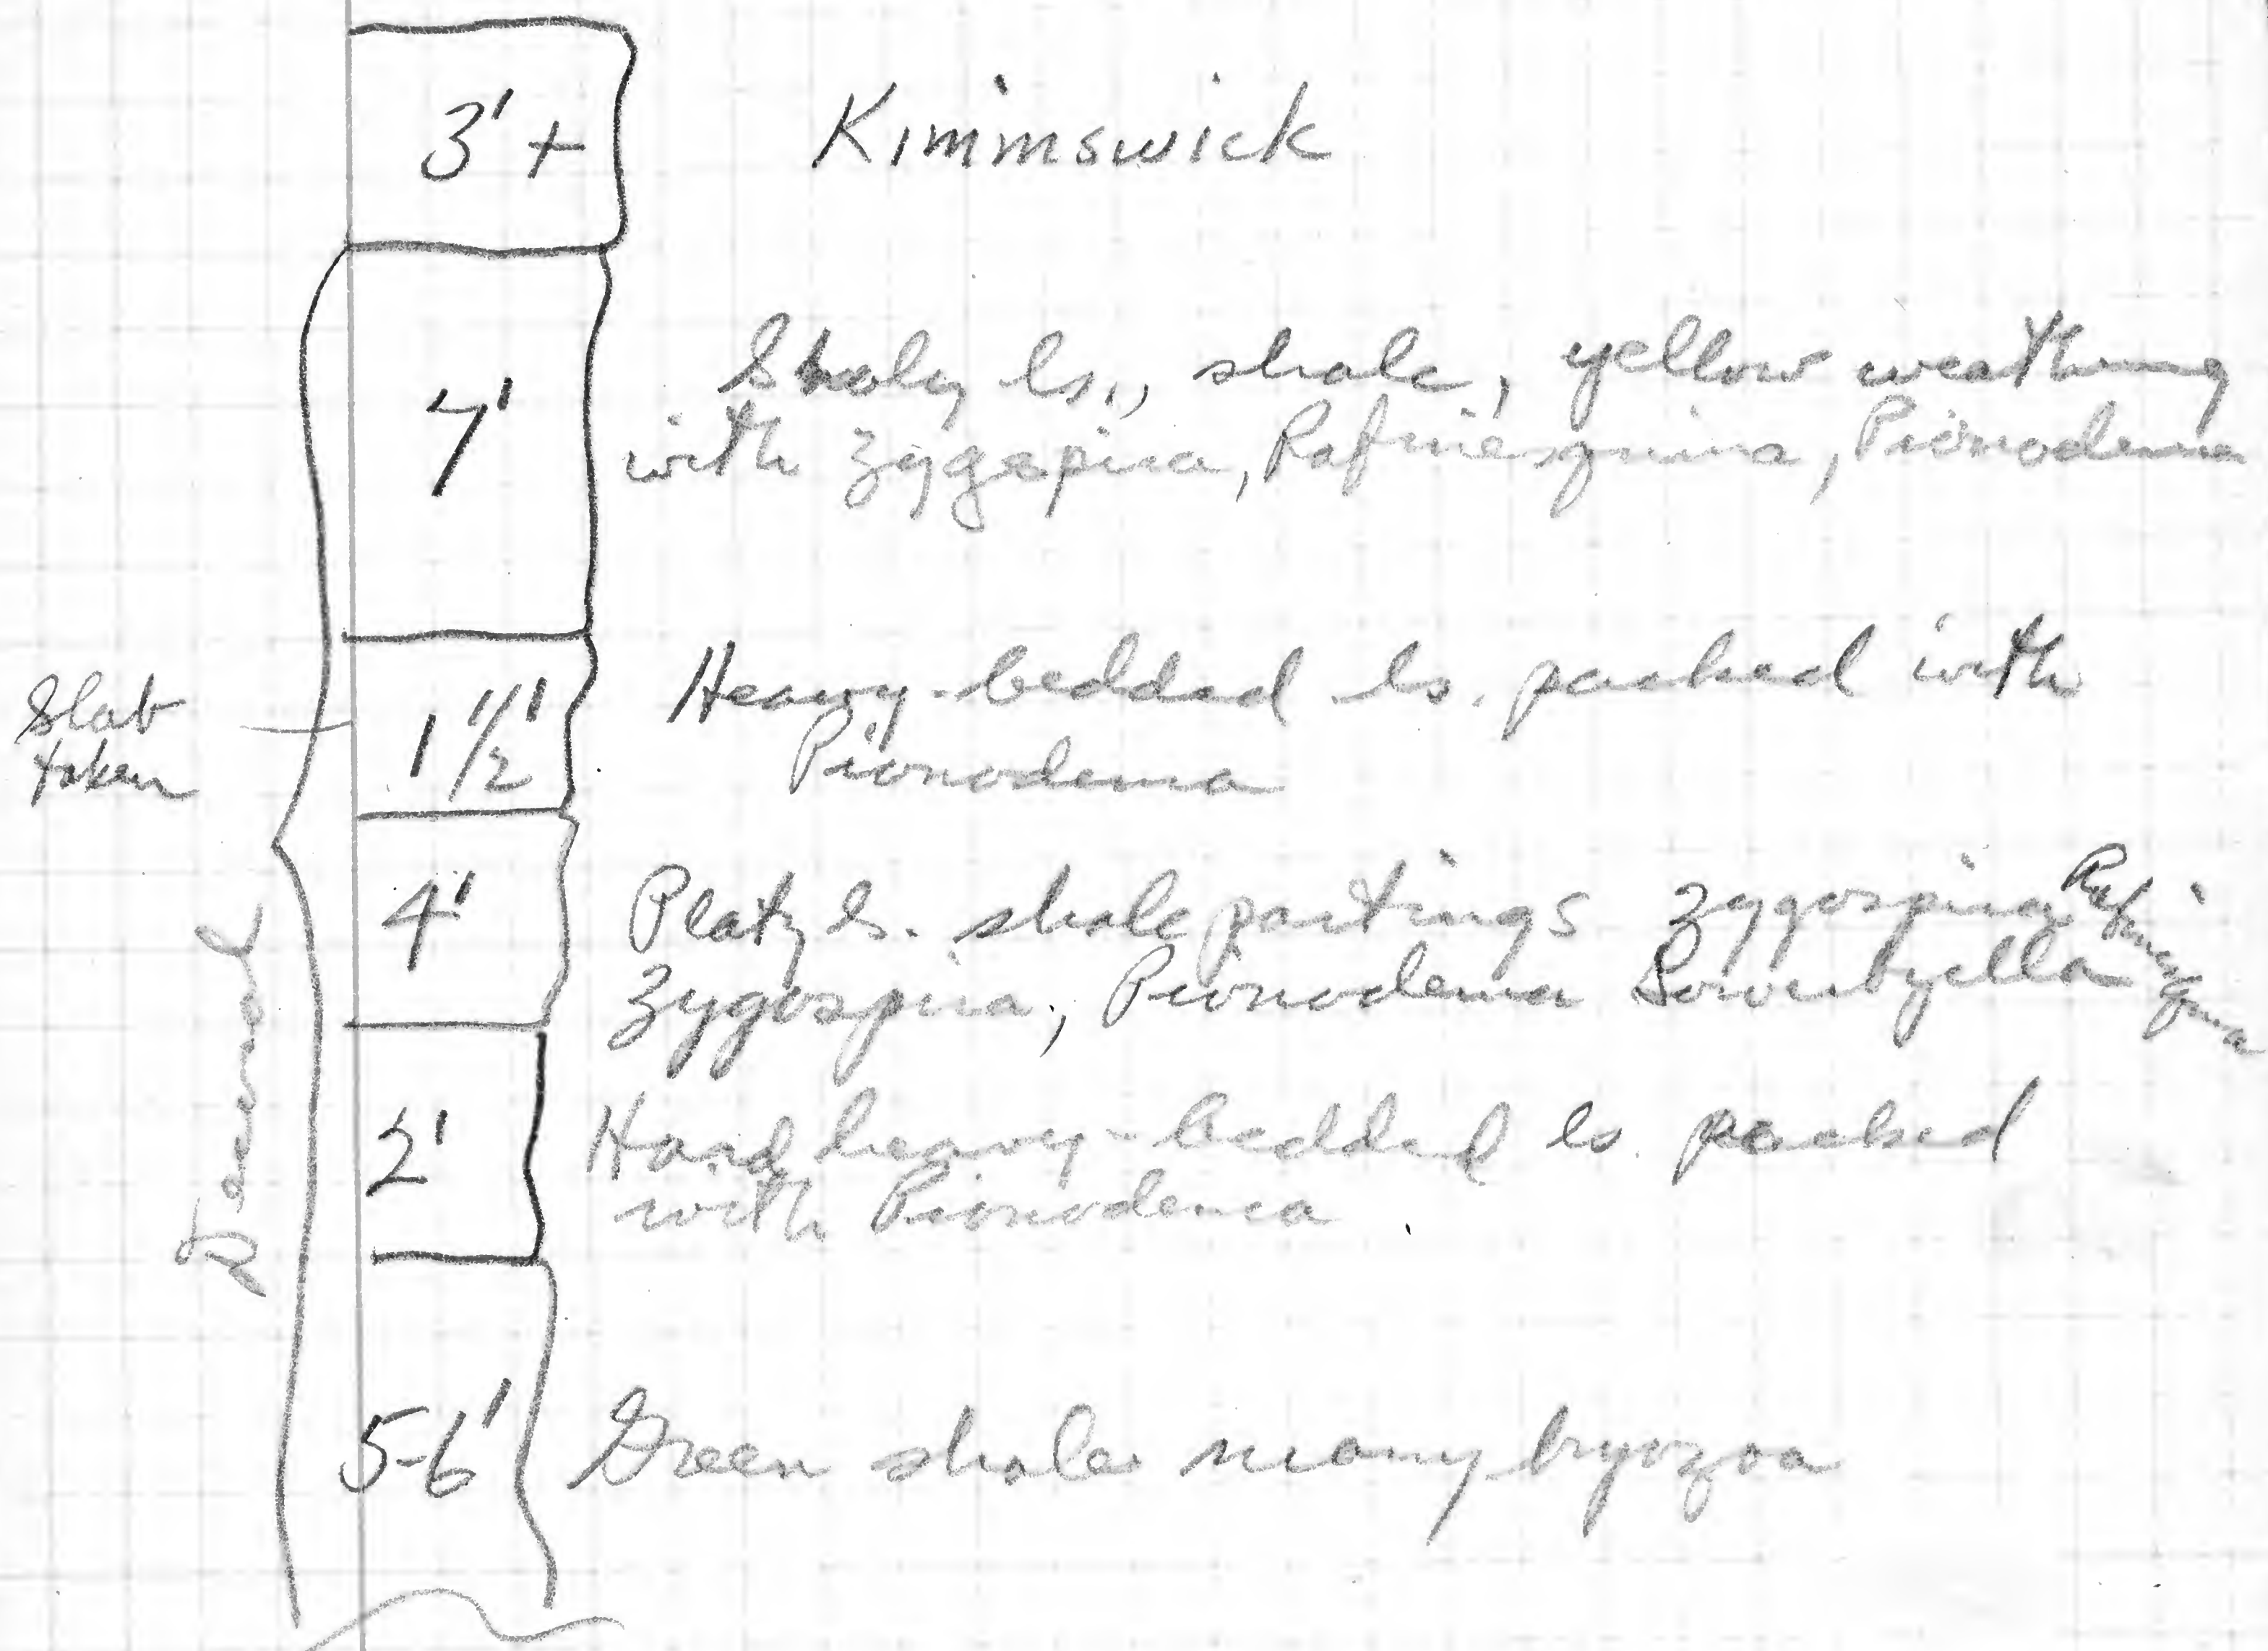 3'+ Kimmswick
7' Shaly ls., shale, yellow weathering
with Zygospira, Rafinesquina, Pionodema
Slab
taken
1 1/2' Heavy-bedded ls. packed with
Pionodema
4' Platy ls. shale partings Zygospira Rafinesquina
Zygospira, Pionodema Sowerbyella
Decorah
2' Hard heavy-bedded ls. packed
with Pionodema
5-6' Green shale many bryozoa